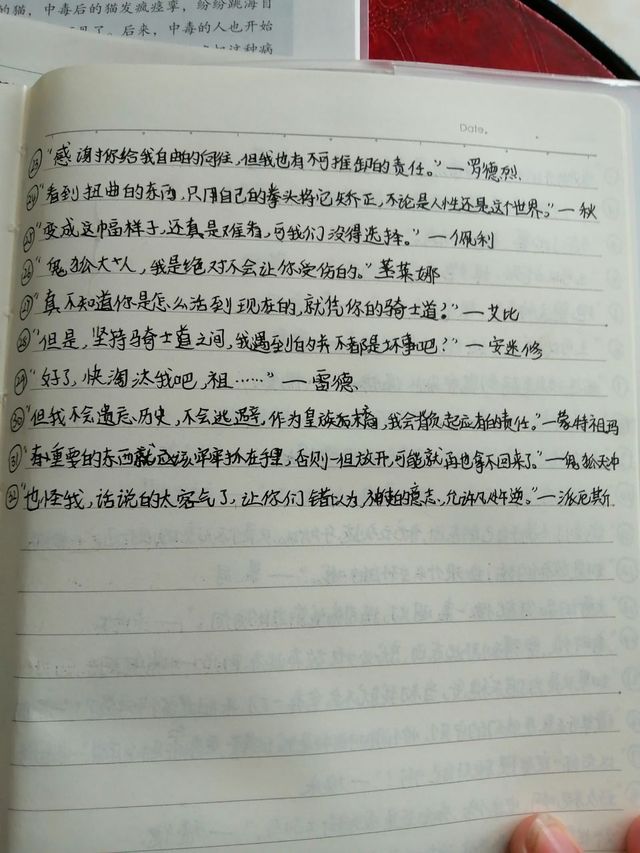 的猫，中毒后的猫发疯痉挛，纷纷跳海自
了。后来，中毒的人也开始
这种病
Date.
㉓“感谢你给我自由的向往，但我也有不可推卸的责任。”—罗德烈.
㉔“看到扭曲的东西，只用自己的拳头将它矫正，不论是人性还是这个世界。”—秋
㉕“变成这幅样子，还真是难看，可我们没得选择。”—佩利
㉖“鬼狐大人，我是绝对不会让你受伤的。”莱娜
㉗“真不知道你是怎么活到现在的，就凭你的骑士道？”—艾比
㉘“但是，坚持骑士道之间，我遇到的并不都是坏事吧？”—安迷修
㉙“好了，快淘汰我吧，祖……”—雷德.
㉚“但我不会遗忘历史，不会逃避，作为皇族后裔，我会背负起应有的责任。”—蒙特祖玛
㉛“重要的东西就应该牢牢抓在手里，否则一但放开，可能就再也拿不回来了。”—鬼狐天冲
㉜“也怪我，话说的太客气了，让你们错以为，神使的意志，允许凡人忤逆。”—派厄斯.